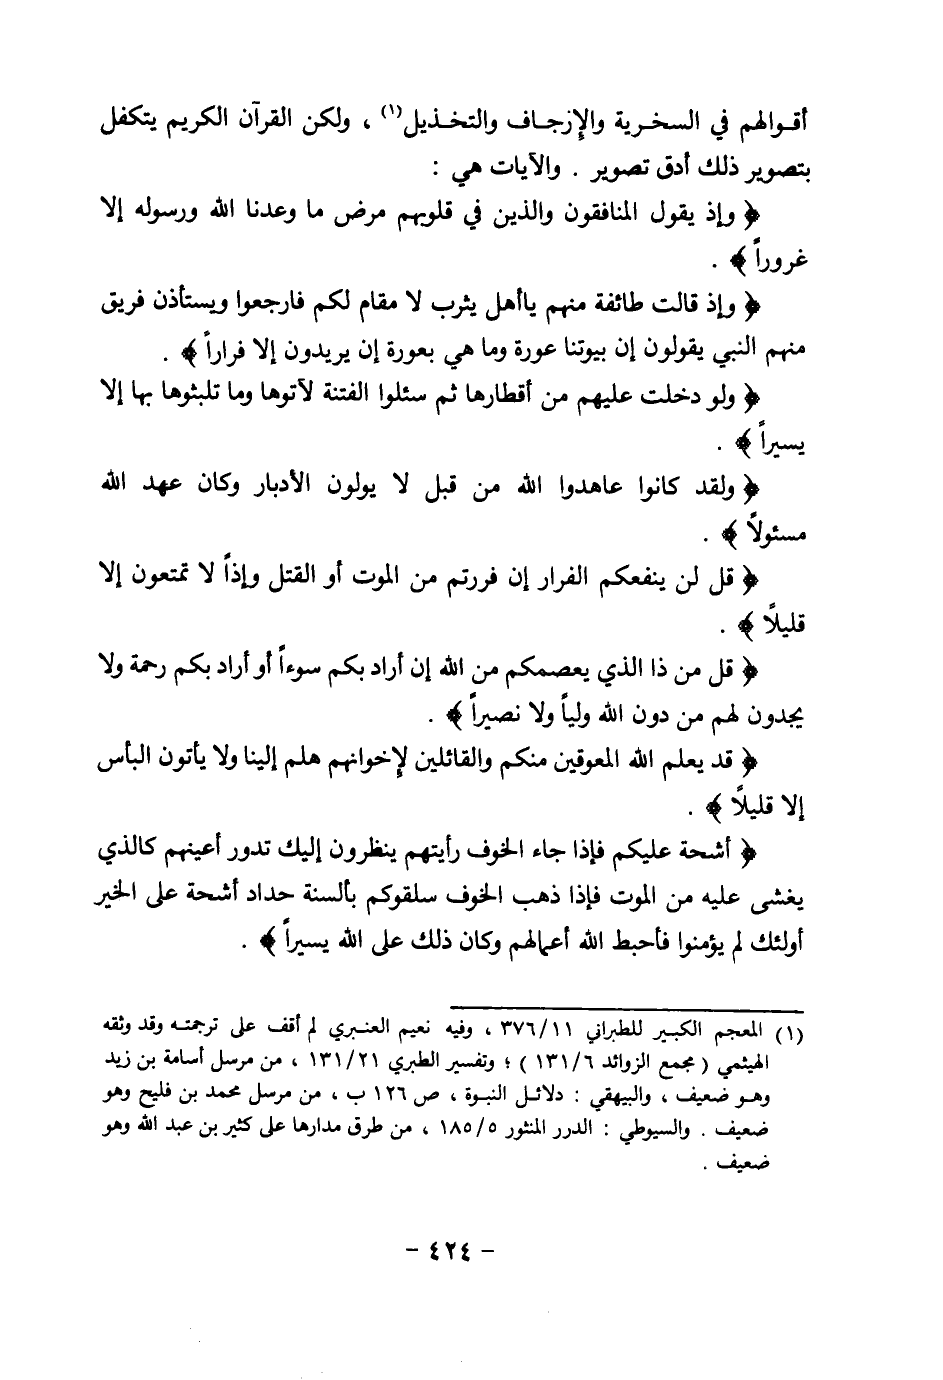 أقـوالهم في السخـرية والإزجـاف والتخـذيل(١) ، ولكن القرآن الكريم يتكفل
بتصوير ذلك أدق تصوير . والآيات هي :
﴿ وإذ يقول المنافقون والذين في قلوبهم مرض ما وعدنا الله ورسوله إلا
غروراً ﴾ .
﴿ وإذ قالت طائفة منهم ياأهل يثرب لا مقام لكم فارجعوا ويستأذن فريق
منهم النبي يقولون إن بيوتنا عورة وما هي بعورة إن يريدون إلا فراراً ﴾ .
﴿ ولو دخلت عليهم من أقطارها ثم سئلوا الفتنة لآتوها وما تلبثوها بها إلا
يسيراً ﴾ .
﴿ ولقد كانوا عاهدوا الله من قبل لا يولون الأدبار وكان عهد الله
مسئولاً ﴾ .
﴿ قل لن ينفعكم الفرار إن فررتم من الموت أو القتل وإذاً لا تمتعون إلا
قليلاً ﴾ .
﴿ قل من ذا الذي يعصمكم من الله إن أراد بكم سوءاً أو أراد بكم رحمة ولا
يجدون لهم من دون الله ولياً ولا نصيراً ﴾ .
﴿ قد يعلم الله المعوقين منكم والقائلين لإخوانهم هلم إلينا ولا يأتون البأس
إلا قليلاً ﴾ .
﴿ أشحة عليكم فإذا جاء الخوف رأيتهم ينظرون إليك تدور أعينهم كالذي
يغشى عليه من الموت فإذا ذهب الخوف سلقوكم بألسنة حداد أشحة على الخير
أولئك لم يؤمنوا فأحبط الله أعمالهم وكان ذلك على الله يسيراً ﴾ .
(١) المعجم الكبـير للطبراني ٣٧٦/١١ ، وفيه نعيم العنـبري لم أقف على ترجمتـه وقد وثقه
الهيثمي ( مجمع الزوائد ١٣١/٦ ) ؛ وتفسير الطبري ١٣١/٢١ ، من مرسل أسامة بن زيد
وهـو ضعيف ، والبيهقي : دلائـل النبـوة ، ص ١٢٦ ب ، من مرسل محمد بن فليح وهو
ضعيف . والسيوطي : الدرر المنثور ١٨٥/٥ ، من طرق مدارها على كثير بن عبد الله وهو
ضعيف .
- ٤٢٤ -